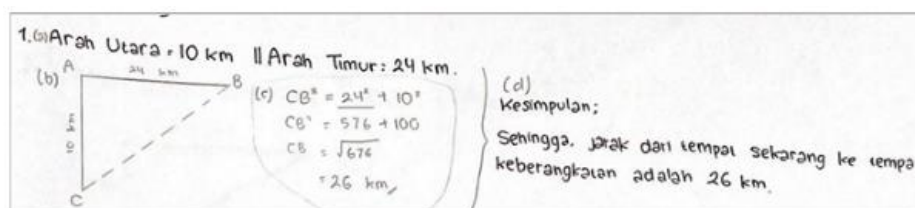 1. (a) Arah Utara : 10 km || Arah Timur : 24 km.
(b)
A
24 km
B
10 km
C
(c) CB² = 24² + 10²
CB² = 576 + 100
CB = √676
= 26 km
(d)
Kesimpulan;
Sehingga, jarak dari tempat sekarang ke tempa
keberangkatan adalah 26 km.